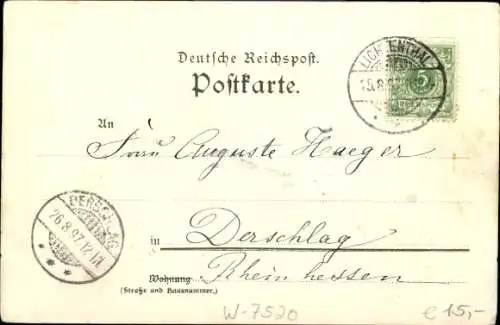 Deutsche Reichspost.
Postkarte.
LICHTENTHAL
5
An
Frau Auguste Haeger
DERSCHLAG
26.8.97.12-1N
in Derschlag
Rheinhessen
Wohnung
(Straße und Hausnummer.)
W-7520
€15,-